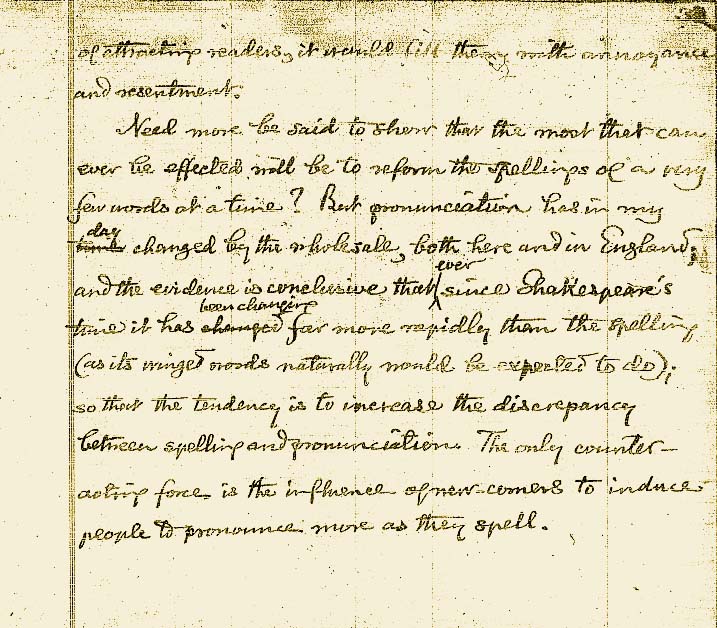 of attracting readers, it would fill them with annoyance
and resentment.
Need more be said to show that the most that can
ever be effected will be to reform the spellings of a very
few words at a time? But pronunciation has in my
day
time changed by the wholesale, both here and in England;
ever
and the evidence is conclusive that since Shakespeare's
been changing
time it has changed far more rapidly than the spelling
(as its winged words naturally would be expected to do);
so that the tendency is to increase the discrepancy
between spelling and pronunciation. The only counter-
acting force is the influence of new-comers to induce
people to pronounce more as they spell.